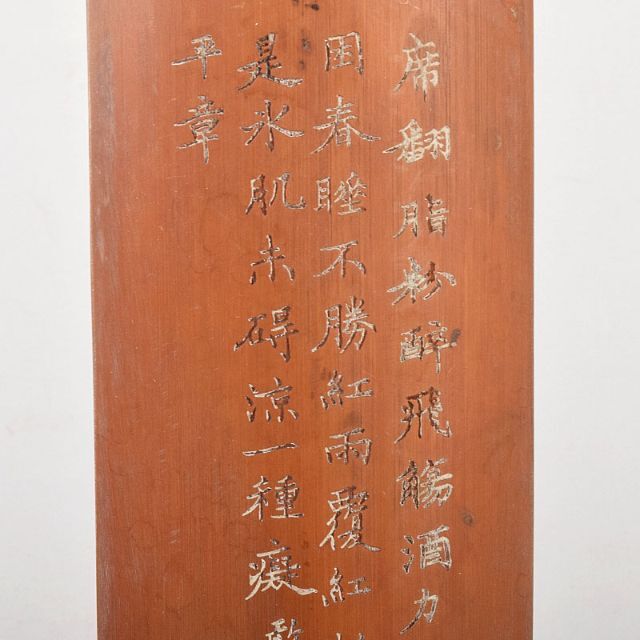 席翻脂粉醉飛觴酒力
困春睡不勝紅雨覆紅
是氷肌未碍涼一種癡
平章